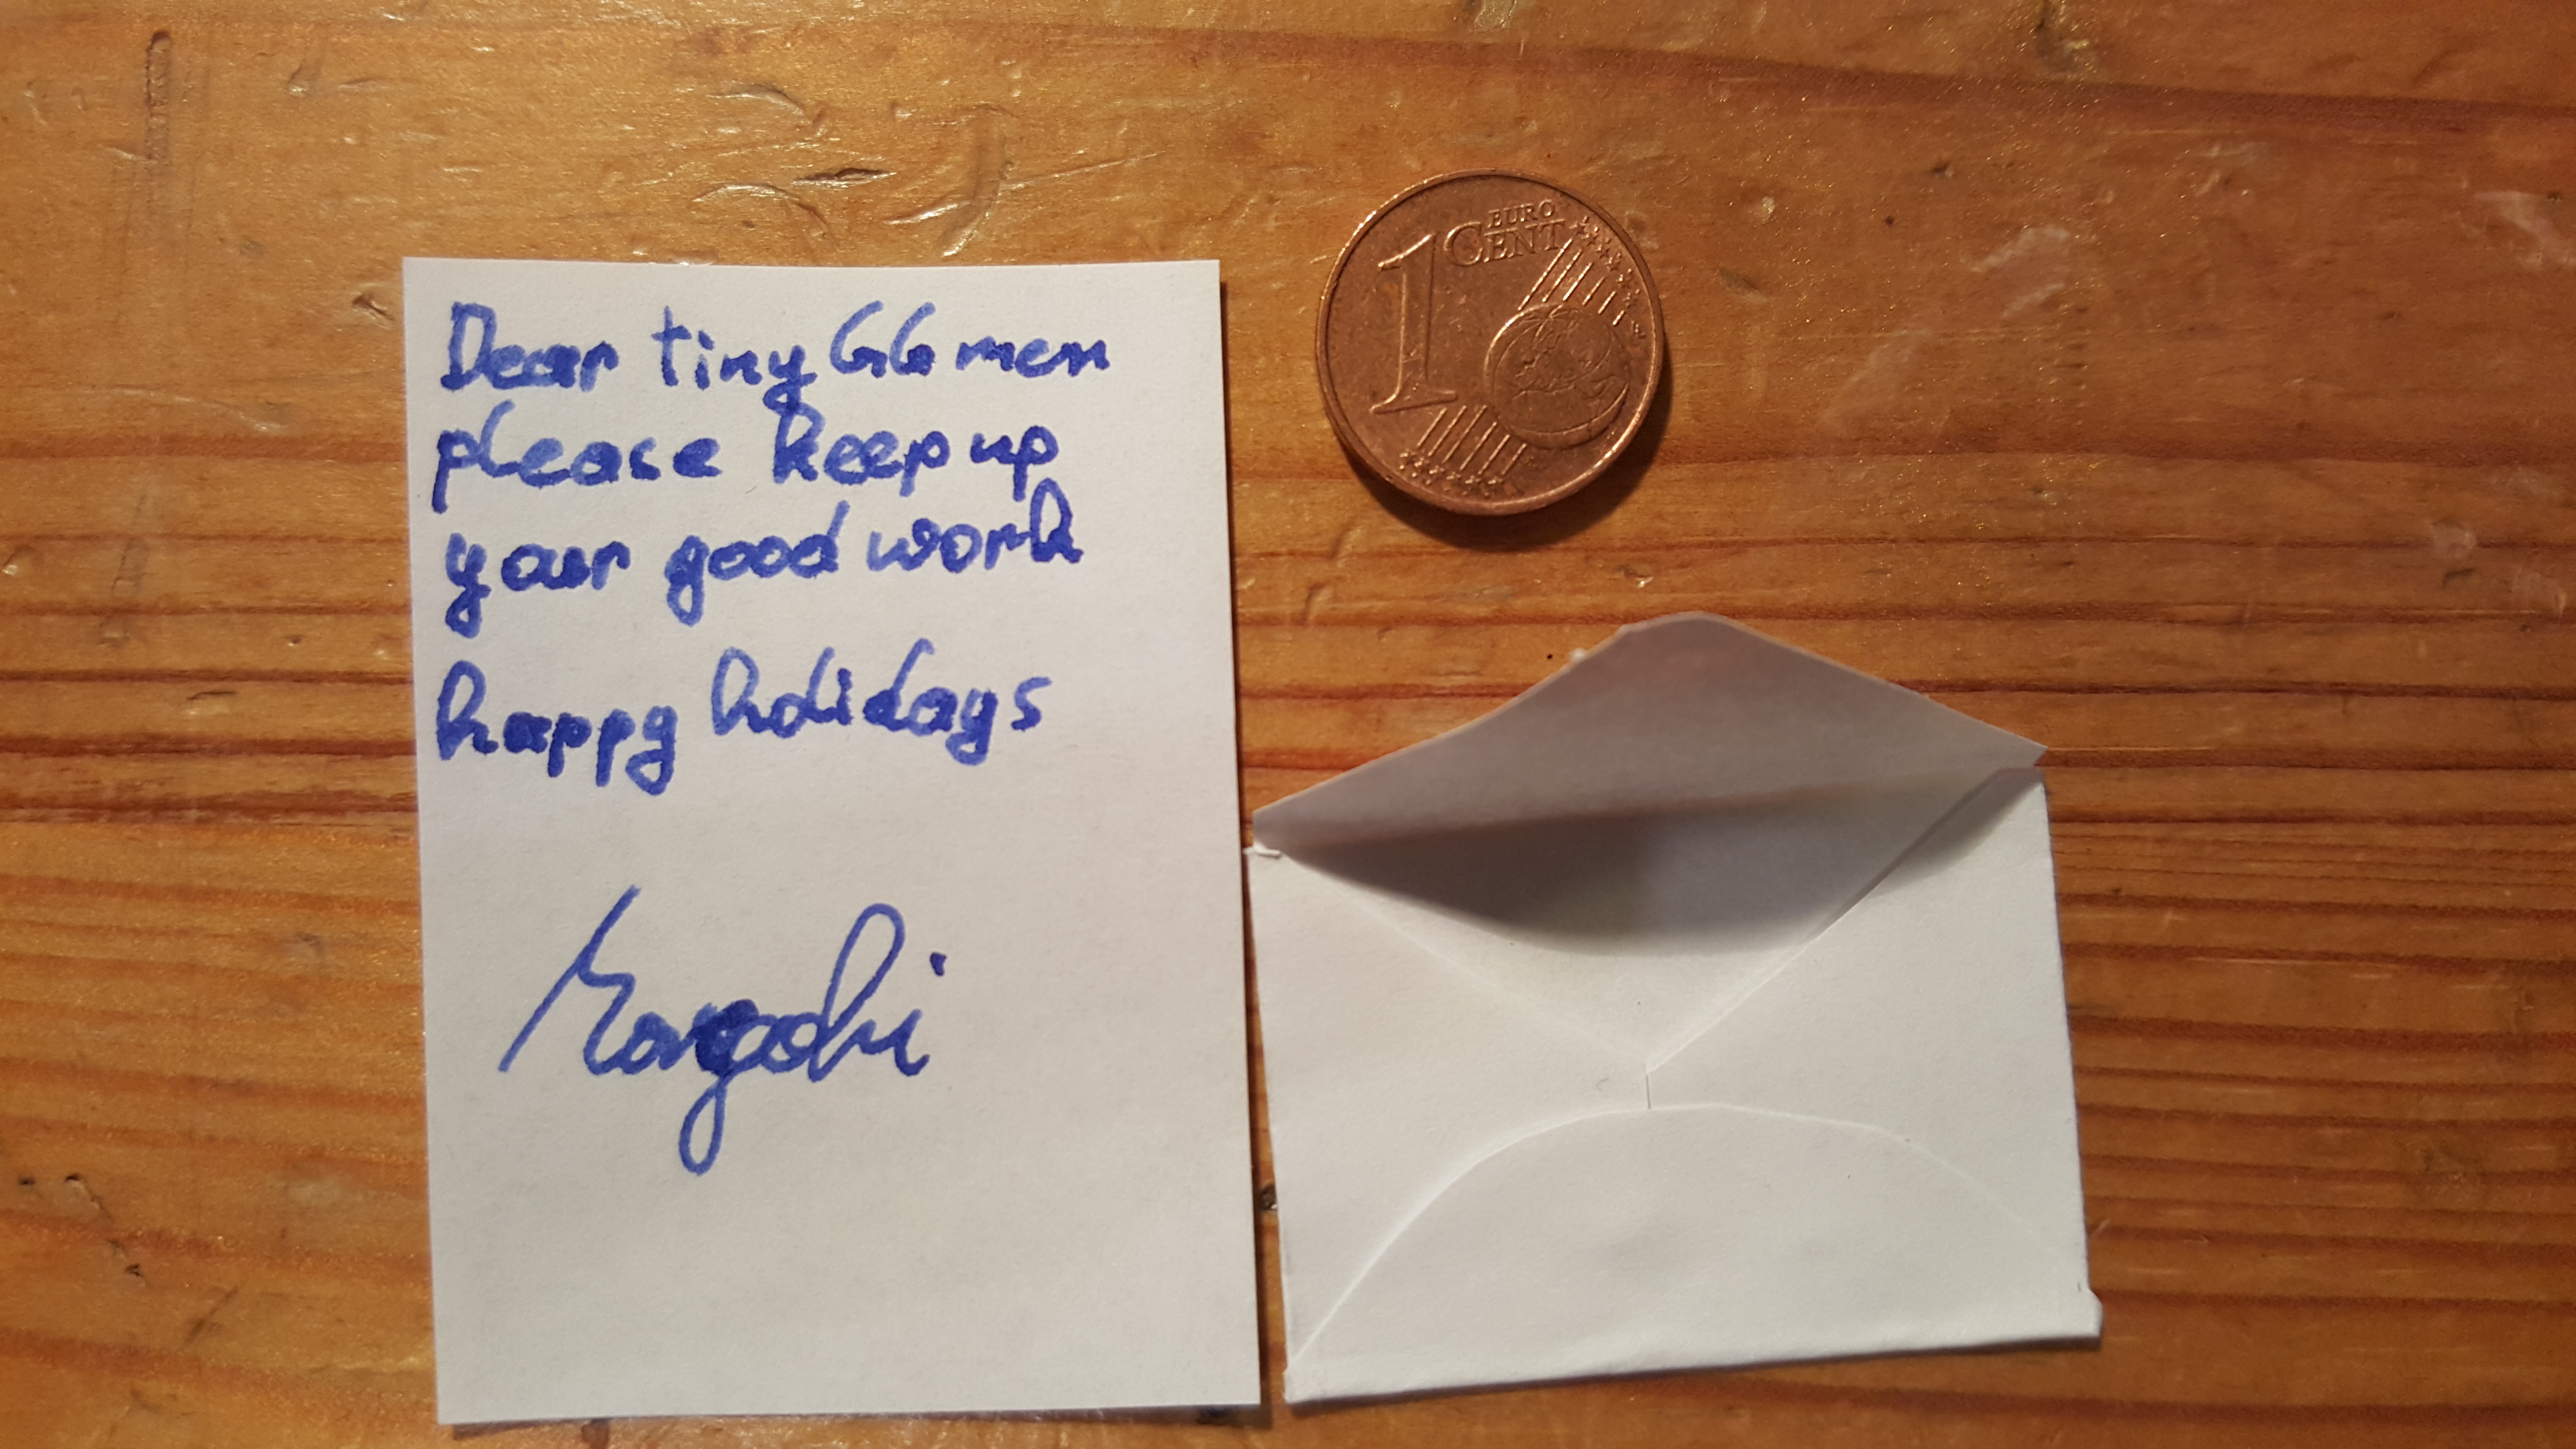 Dear tiny GG men
please keep up
your good work
happy holidays
1 EURO
CENT